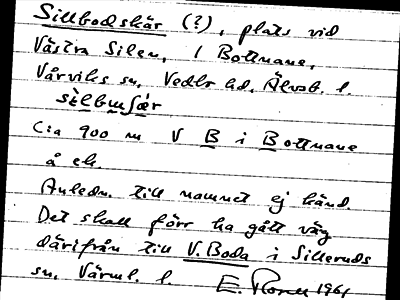 Sillbodskär (?), plats vid
Västra Silen, i Bottnane,
Vårviks sn, Vedbo hd, Älvsb. l.
Ca 900 m V B i Bottnane
å ek.
Anledn. till namnet ej känd.
Det skall förr ha gått väg
därifrån till V. Boda i Silleruds
sn, Värml. l. E. 1961